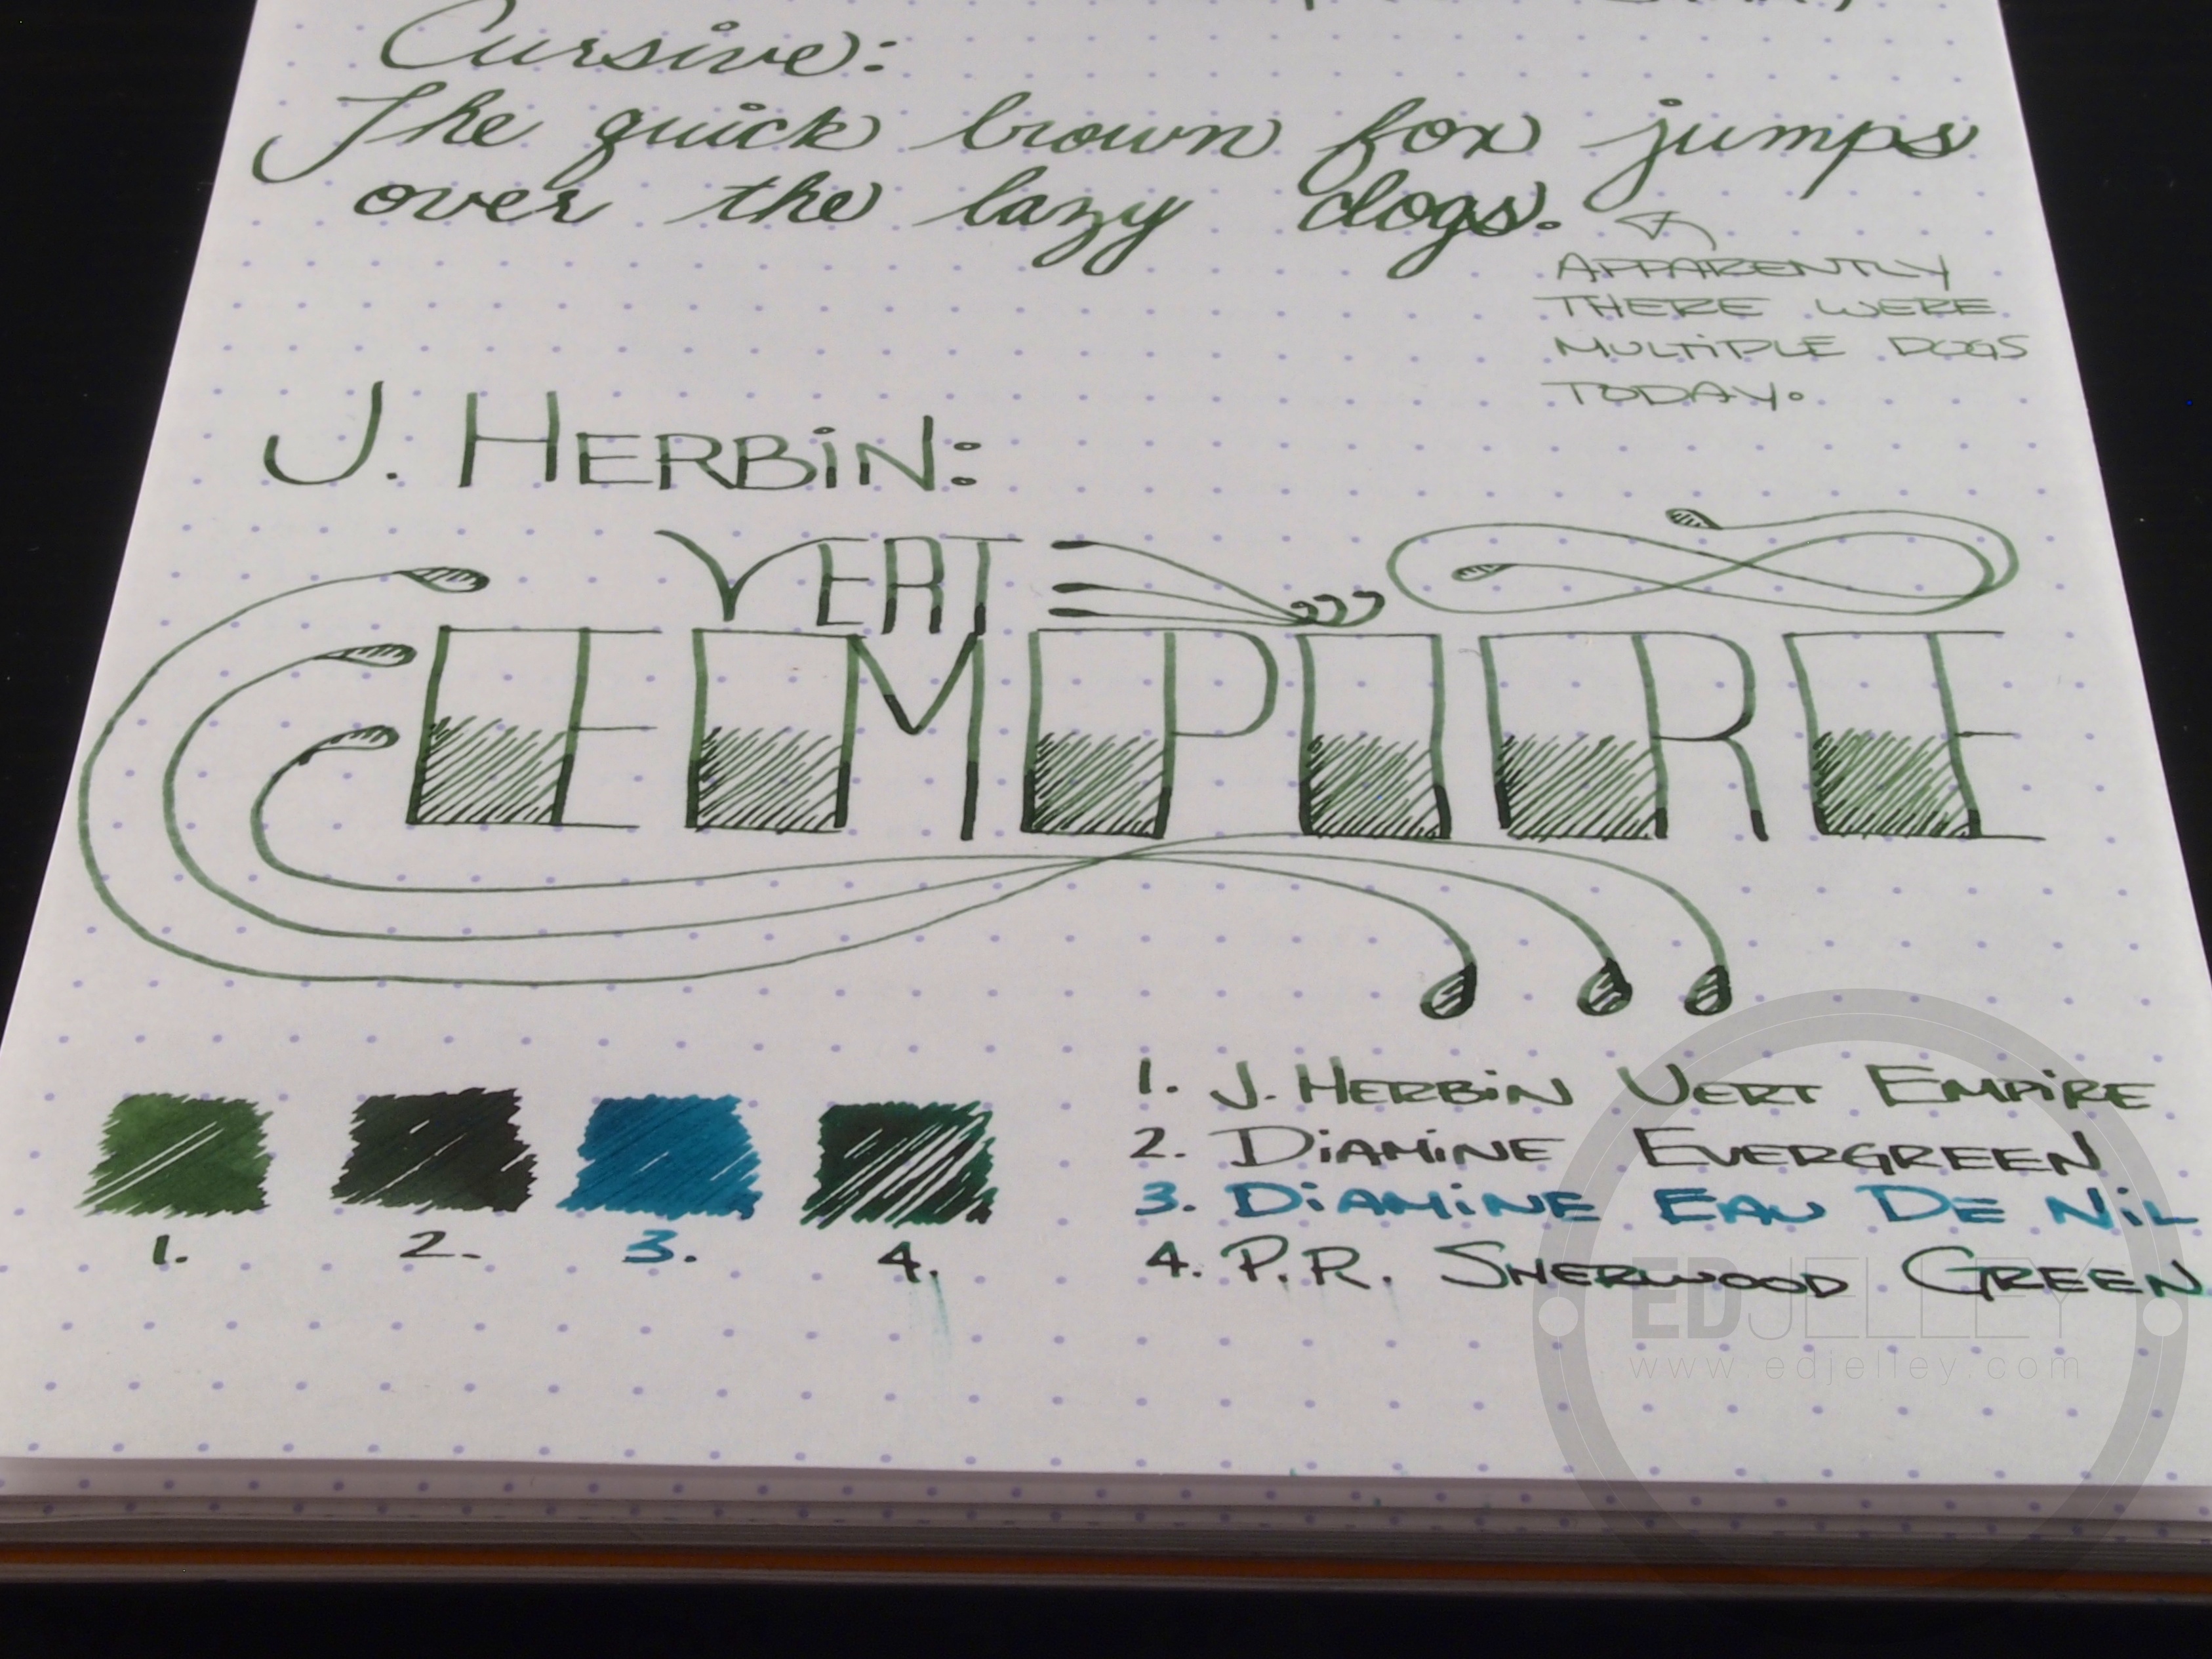 Cursive:
The quick brown fox jumps
over the lazy dogs.
APPARENTLY
THERE WERE
MULTiPLE DOGS
TODAY.
J. HERBiN:
VERT
EMPIRE
1. J. HERBiN VERT EMPiRE
2. DiAMiNE EVERGREEN
3. DiAMiNE EAU DE NiL
4. P.R. SHERWOOD GREEN
1.
2.
3.
4.
EDJELLEY
www.edjelley.com